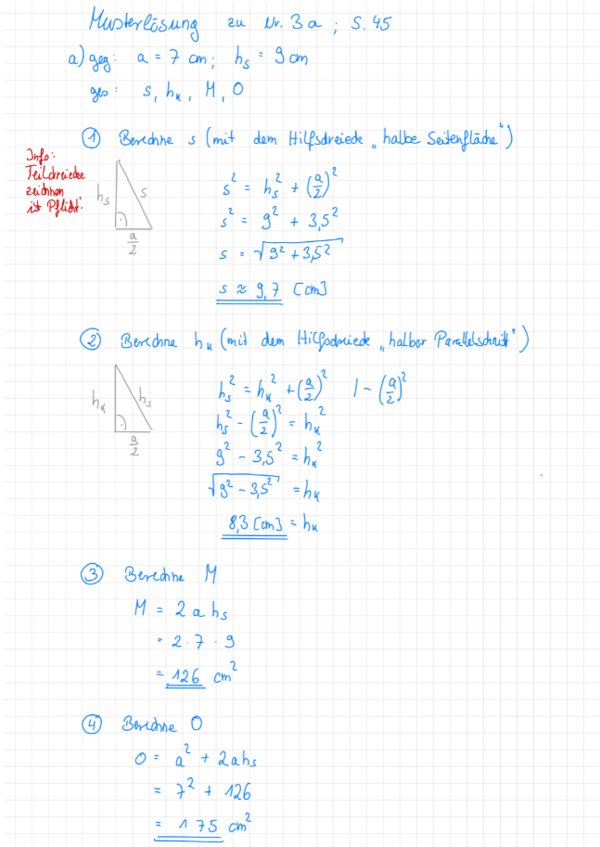 Musterlösung zu Nr. 3a ; S. 45
a) geg: a = 7 cm; hₛ = 9 cm
ges: s, hₖ, M, O
① Berechne s (mit dem Hilfsdreieck „halbe Seitenfläche“)
Info:
Teildreiecke
zeichnen
ist Pflicht!
hₛ s
a/2
s² = hₛ² + (a/2)²
s² = 9² + 3,5²
s = √(9² + 3,5²)
s ≈ 9,7 [cm]
② Berechne hₖ (mit dem Hilfsdreieck „halber Parallelschnitt“)
hₖ hₛ
a/2
hₛ² = hₖ² + (a/2)² | - (a/2)²
hₛ² - (a/2)² = hₖ²
9² - 3,5² = hₖ²
√(9² - 3,5²) = hₖ
8,3 [cm] = hₖ
③ Berechne M
M = 2 a hₛ
= 2 · 7 · 9
= 126 cm²
④ Berechne O
O = a² + 2ahₛ
= 7² + 126
= 175 cm²